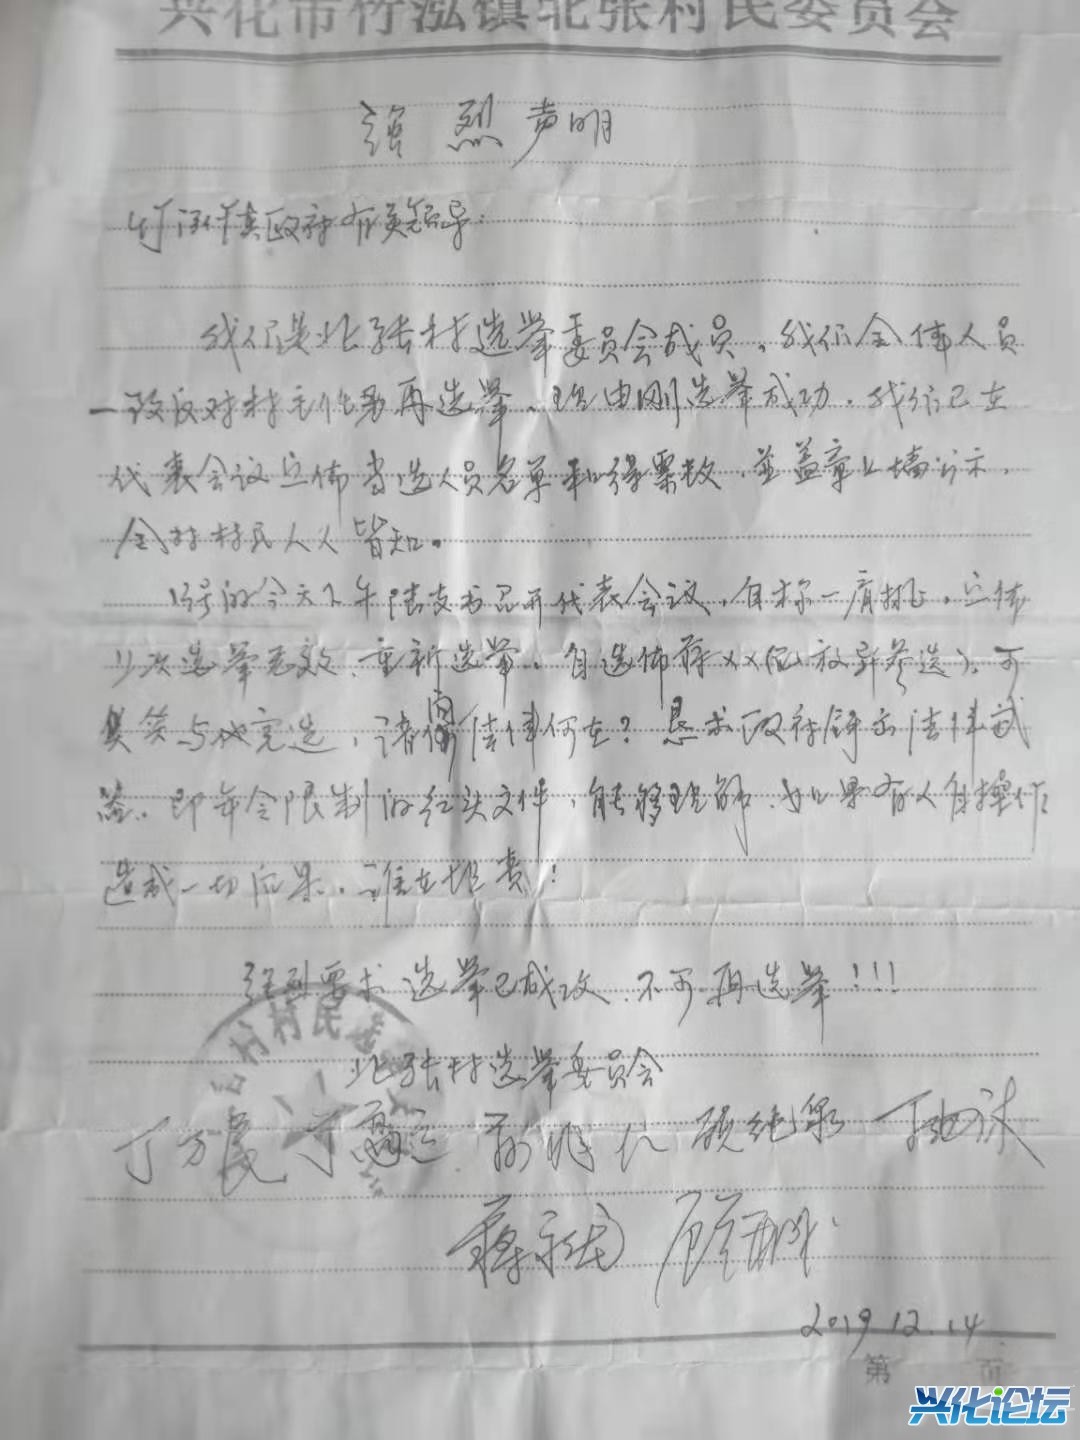 兴化市竹泓镇北张村民委员会
强烈声明
竹泓镇政府有关领导:
我们是北张村选举委员会成员,我们全体人员
一致反对村主任另再选举、理由刚选举成功,我们已在
代表会议宣布当选人员名单和得票数,並盖章上墙公示,
全村村民人人皆知。
13号的今天下午陆支书召开代表会议,自称一肩挑,宣布
以次选举无效、重新选举。自选佈蒋XX(已放弃参选),可
笑与他竞选,请问法律何在?恳求政府解示法律武
器、即年令限制的红头文件,能够理解、如果有人自操作
造成一切后果,谁在担责!
强烈要求选举已成功、不可再选举!!!
北张村选举委员会
丁万
2019.12.14
第 页
兴化论坛